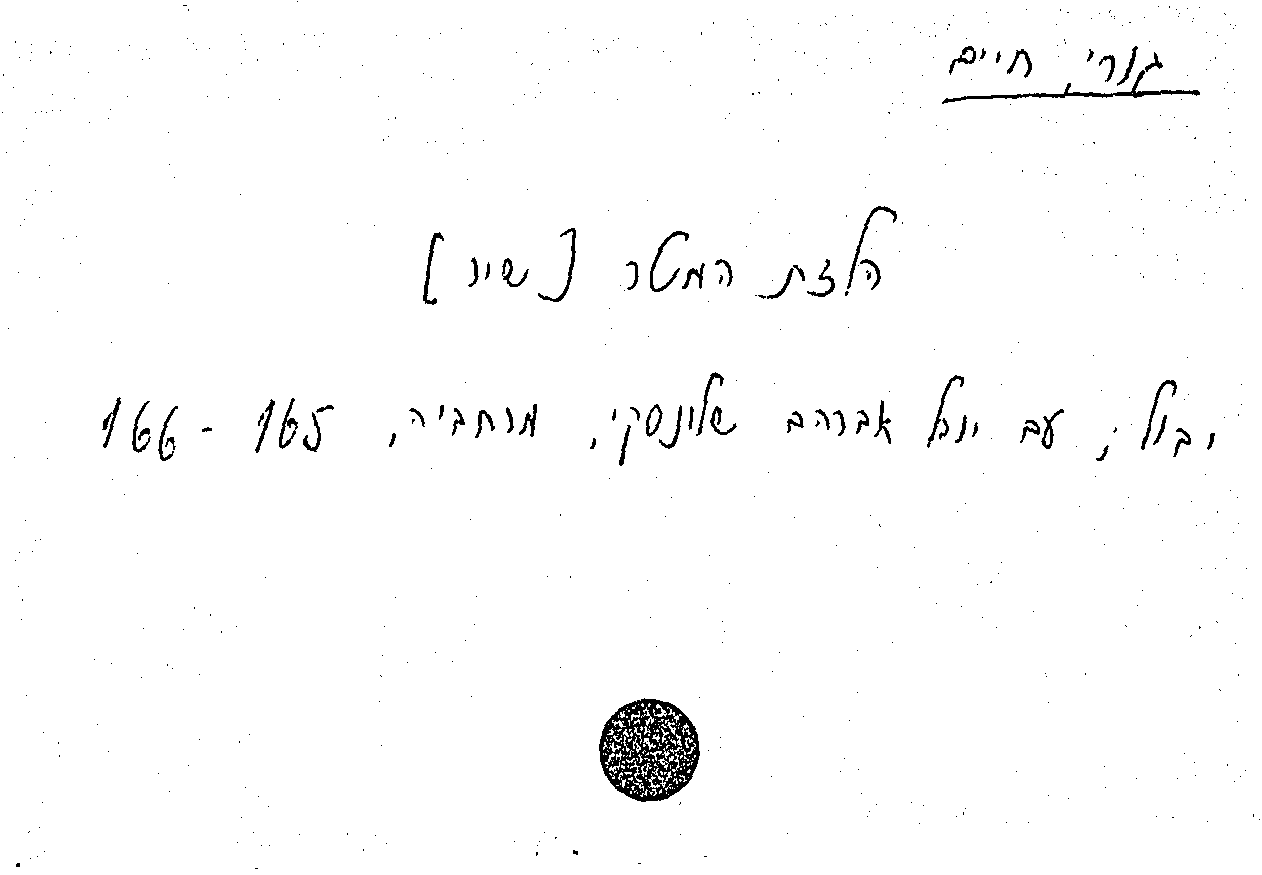 גורי, חיים
הלזת המטר [שיר]
יבול; עם יובל אברהם שלונסקי, מרחביה, 165 - 166